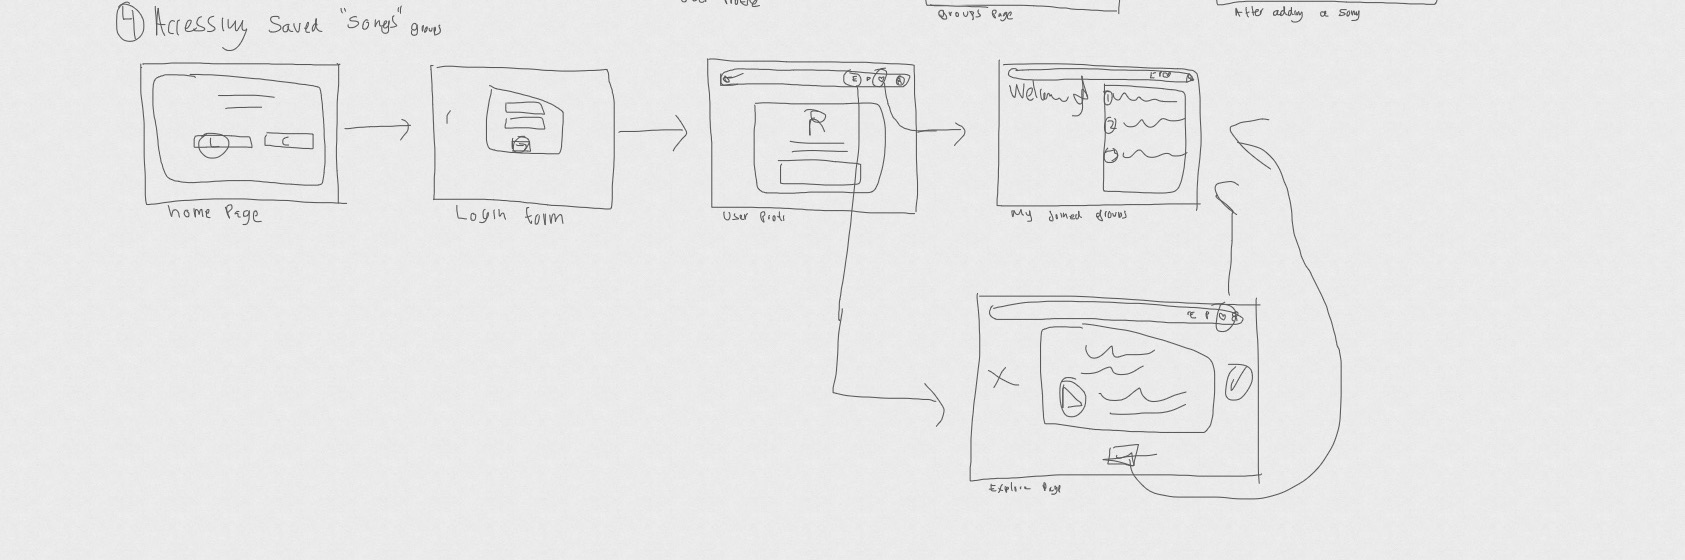 groups Page
After adding a Song
4 Accessing Saved "Songs" groups
L
C
home Page
Login form
E P
R
User
E P
1
2
3
My Joined groups
E P
Explore Page